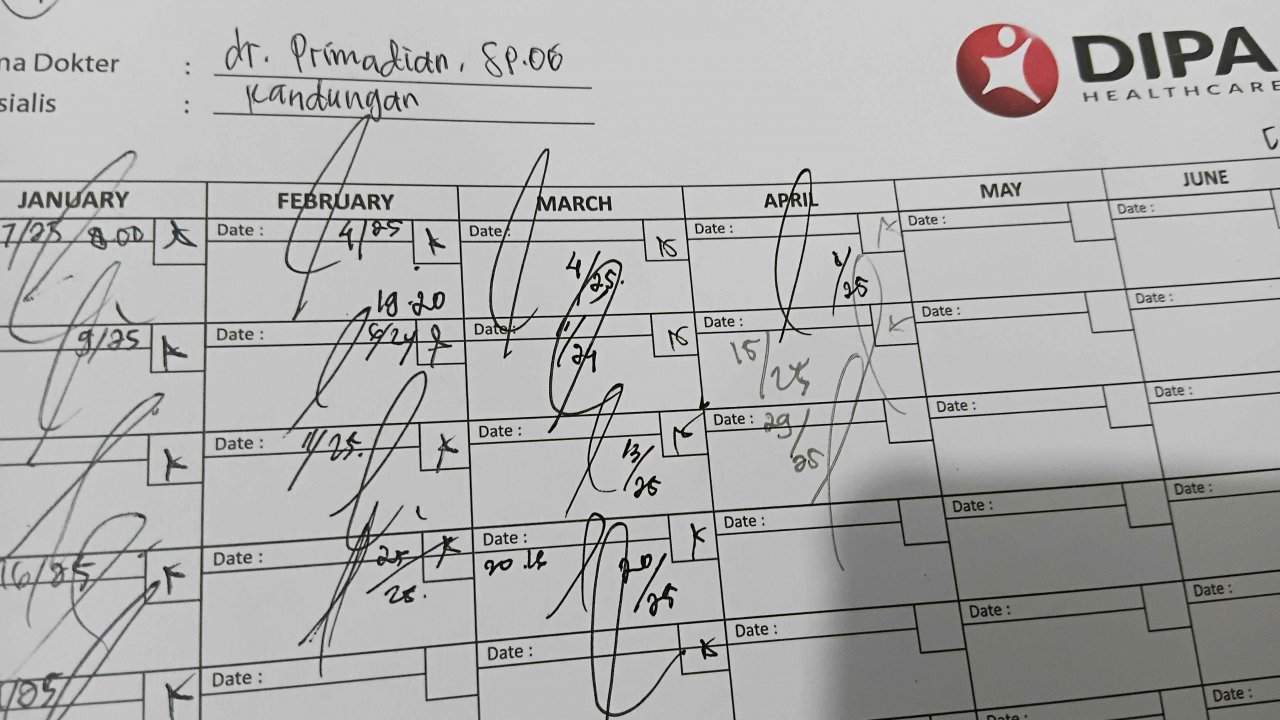 na Dokter : dr. Primadian, Sp.OG
sialis : Kandungan
DIPA
HEALTHCARE
JANUARY FEBRUARY MARCH APRIL MAY JUNE
7/25 8.00 K Date : 4/25 K Date: K Date : K Date : Date :
19.20 4/25. 1/25
9/25 K Date : Date: K Date : K Date : Date :
15/25
K Date : 11/25. K Date : K Date : 29/25 Date : Date :
13/25
16/25 K Date : 25/25. K Date : K Date : Date : Date :
20/25
/25 K Date : Date : K Date : Date : Date :
Date : Date :